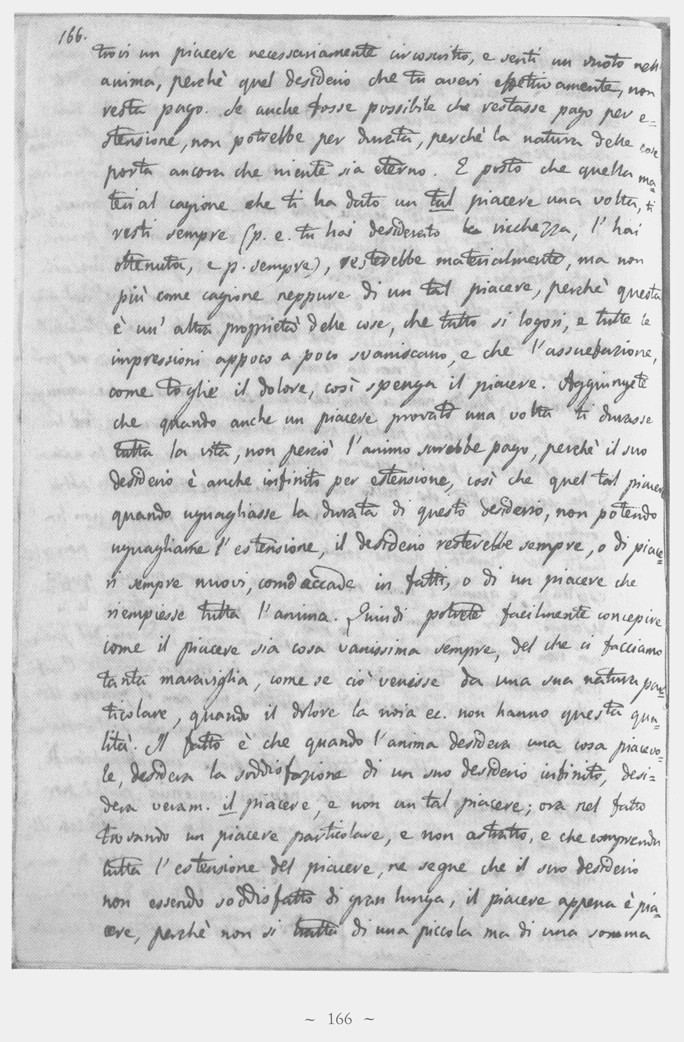 166.
trovi un piacere necessariamente circoscritto, e senti un vuoto nell'
anima, perchè quel desiderio che tu avevi effettivamente, non
resta pago. Se anche fosse possibile che restasse pago per e-
stensione, non potrebbe per durata, perchè la natura delle cose
porta ancora che niente sia eterno. E posto che quella ma-
terial cagione che ti ha dato un tal piacere una volta, ti
resti sempre (p. e. tu hai desiderato la ricchezza, l'hai
ottenuta, e p. sempre), resterebbe materialmente, ma non
più come cagione neppure di un tal piacere, perchè questa
è un'altra proprietà delle cose, che tutto si logori, e tutte le
impressioni appoco a poco svaniscano, e che l'assuefazione,
come toglie il dolore, così spenga il piacere. Aggiungete
che quando anche un piacere provato una volta ti durasse
tutta la vita, non perciò l'animo sarebbe pago, perchè il suo
desiderio è anche infinito per estensione, così che quel tal piacere
quando uguagliasse la durata di questo desiderio, non potendo
uguagliarne l'estensione, il desiderio resterebbe sempre, o di piace-
ri sempre nuovi, come accade in fatti, o di un piacere che
riempiesse tutta l'anima. Quindi potrete facilmente concepire
come il piacere sia cosa vanissima sempre, del che ci facciamo
tanta maraviglia, come se ciò venisse da una sua natura par-
ticolare, quando il dolore la noia ec. non hanno questa qua-
lità. Il fatto è che quando l'anima desidera una cosa piacevo-
le, desidera la soddisfazione di un suo desiderio infinito, desi-
dera veram. il piacere, e non un tal piacere; ora nel fatto
trovando un piacere particolare, e non astratto, e che comprenda
tutta l'estensione del piacere, ne segue che il suo desiderio
non essendo soddisfatto di gran lunga, il piacere appena è pia-
cere, perchè non si tratta di una piccola ma di una somma
~ 166 ~